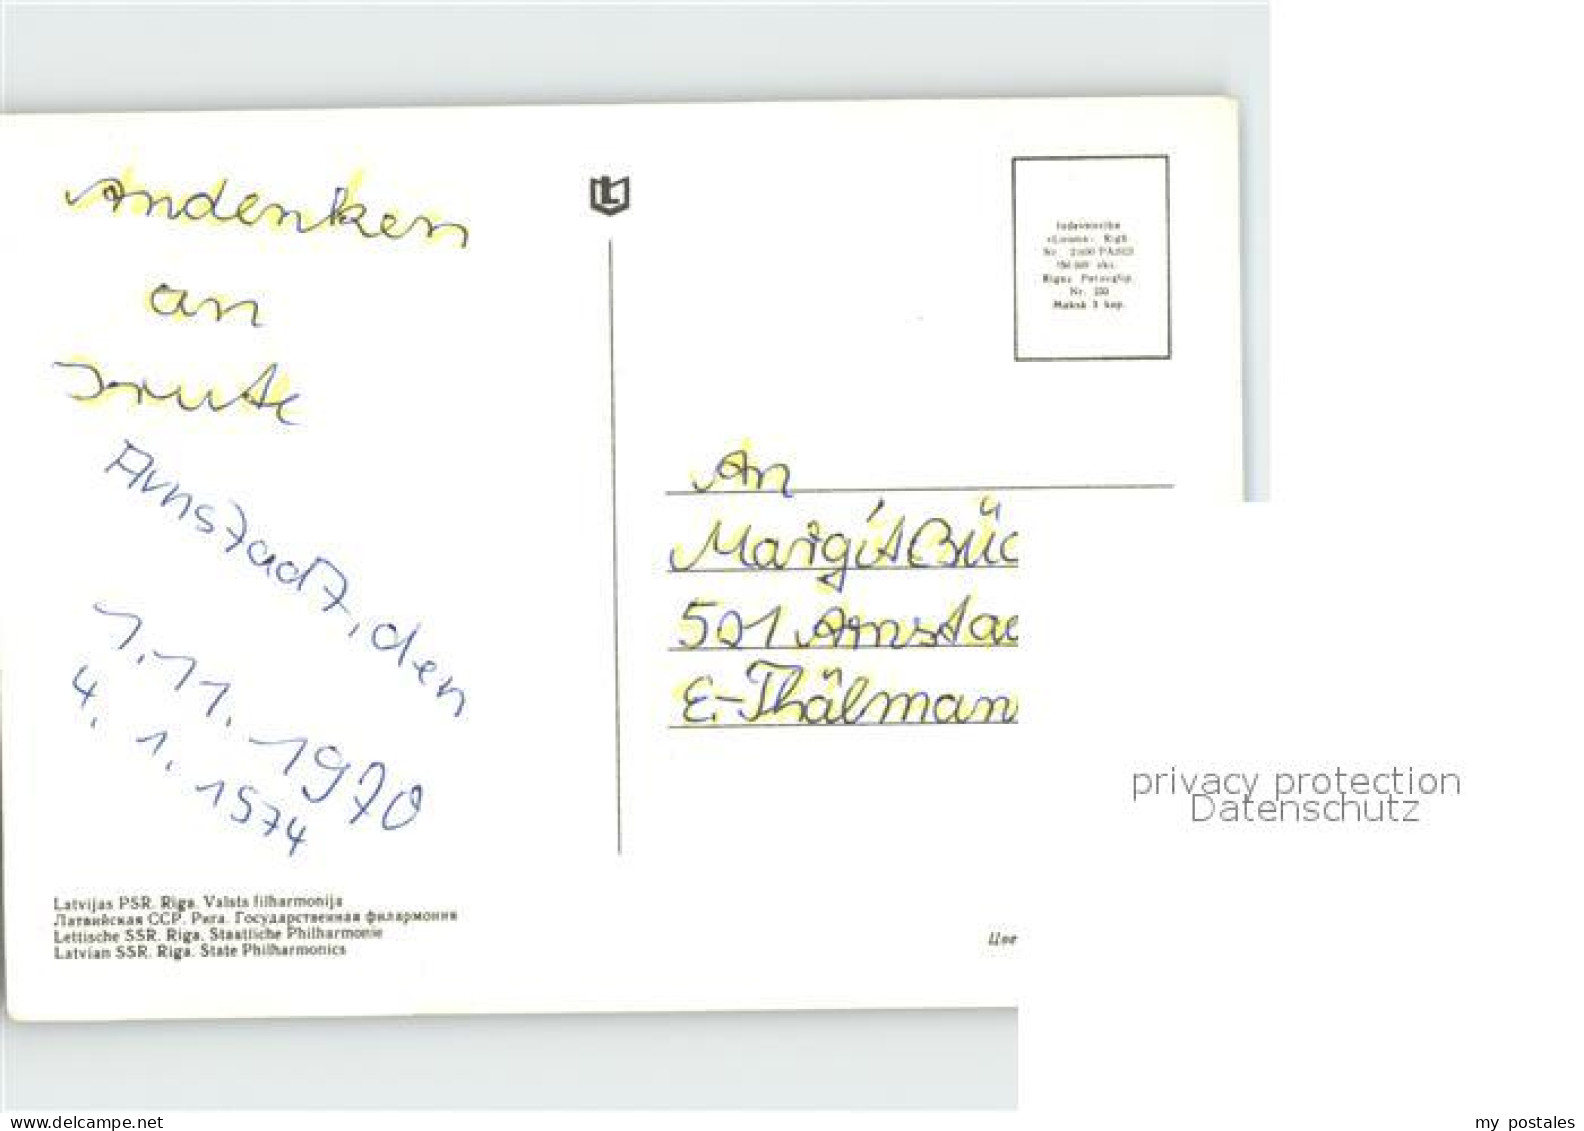 Andenken
an
Irute
Arnstadt, den
1.11.1970
4.1.1974
Latvijas PSR. Rīga. Valsts filharmonija
Латвийская ССР. Рига. Государственная филармония
Lettische SSR. Riga. Staatliche Philharmonie
Latvian SSR. Riga. State Philharmonics
Izdevniecība
«Liesma» Rīgā
Nr. 230
Maksā 3 kap.
An
Margit Büc
501 Arnstad
E.-Thälmann
Цвет
privacy protection
Datenschutz
www.delcampe.net
my_postales